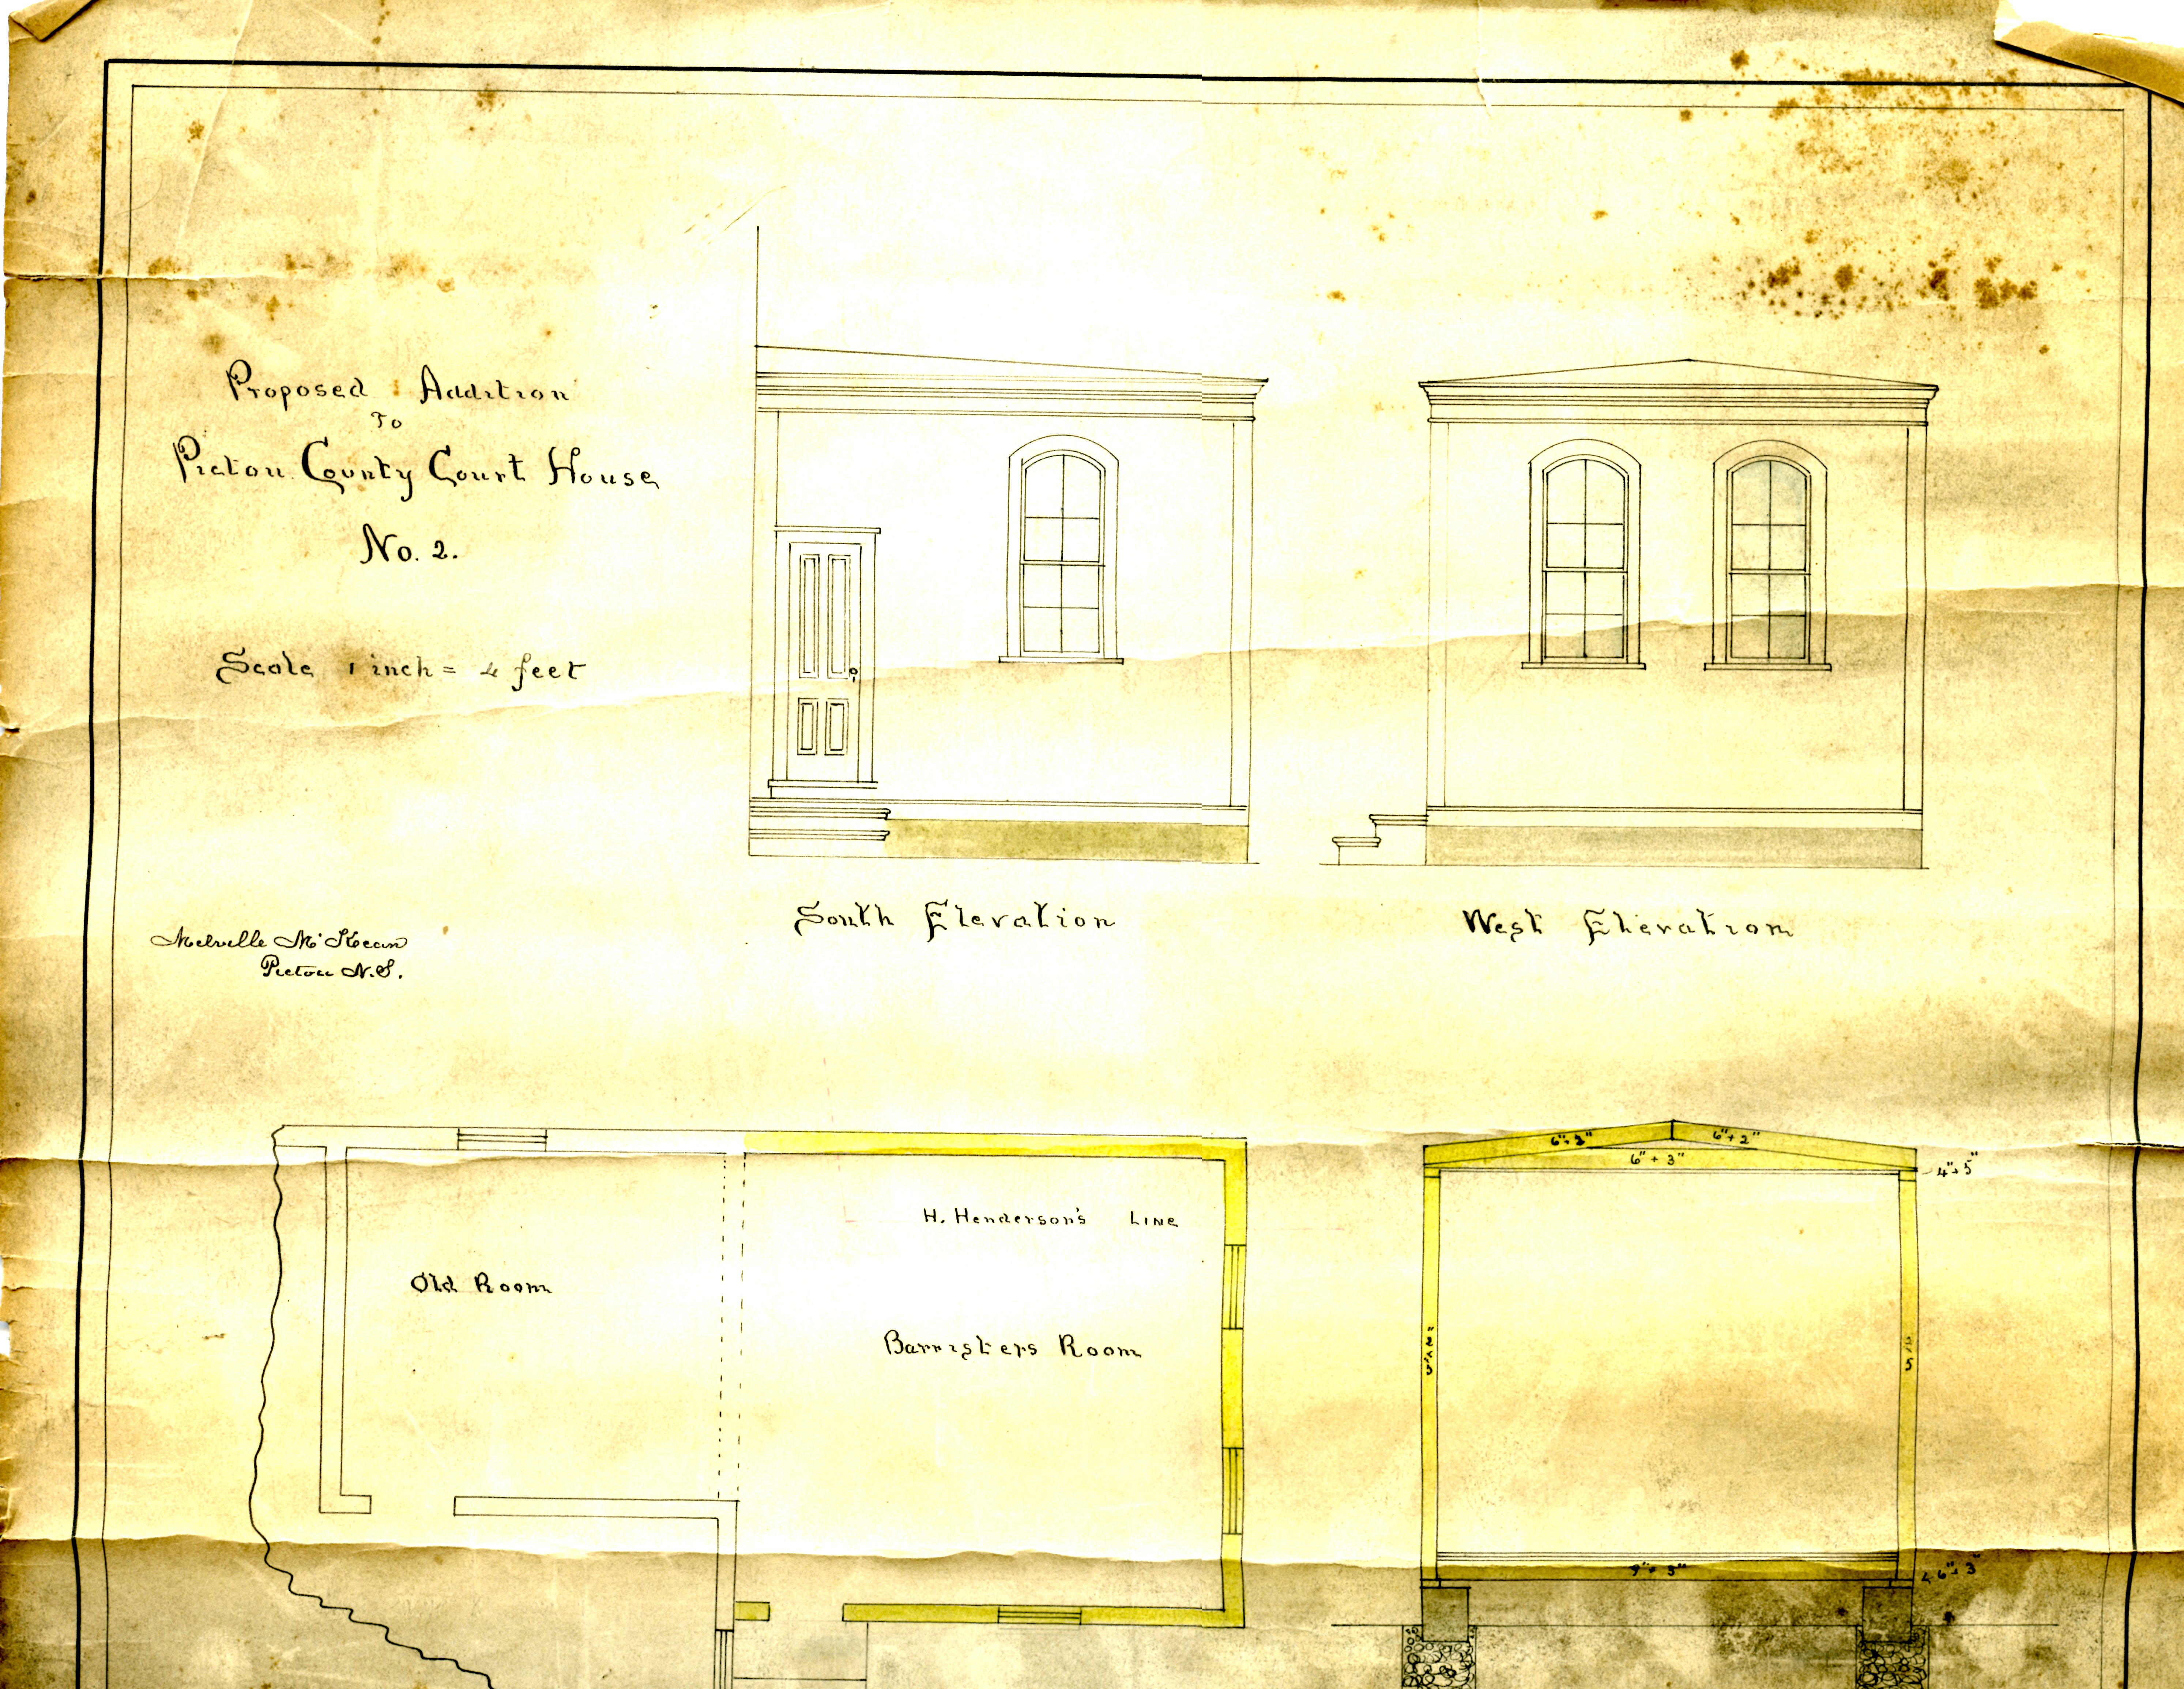 Proposed Addition
To
Pictou County Court House
No. 2.
Scale 1 inch = 4 feet
South Elevation
West Elevation
Melville McKean
Pictou N.S.
6" + 2"
6" + 2"
6" + 3"
4" + 5"
H. Henderson's LINE
Old Room
Barristers Room